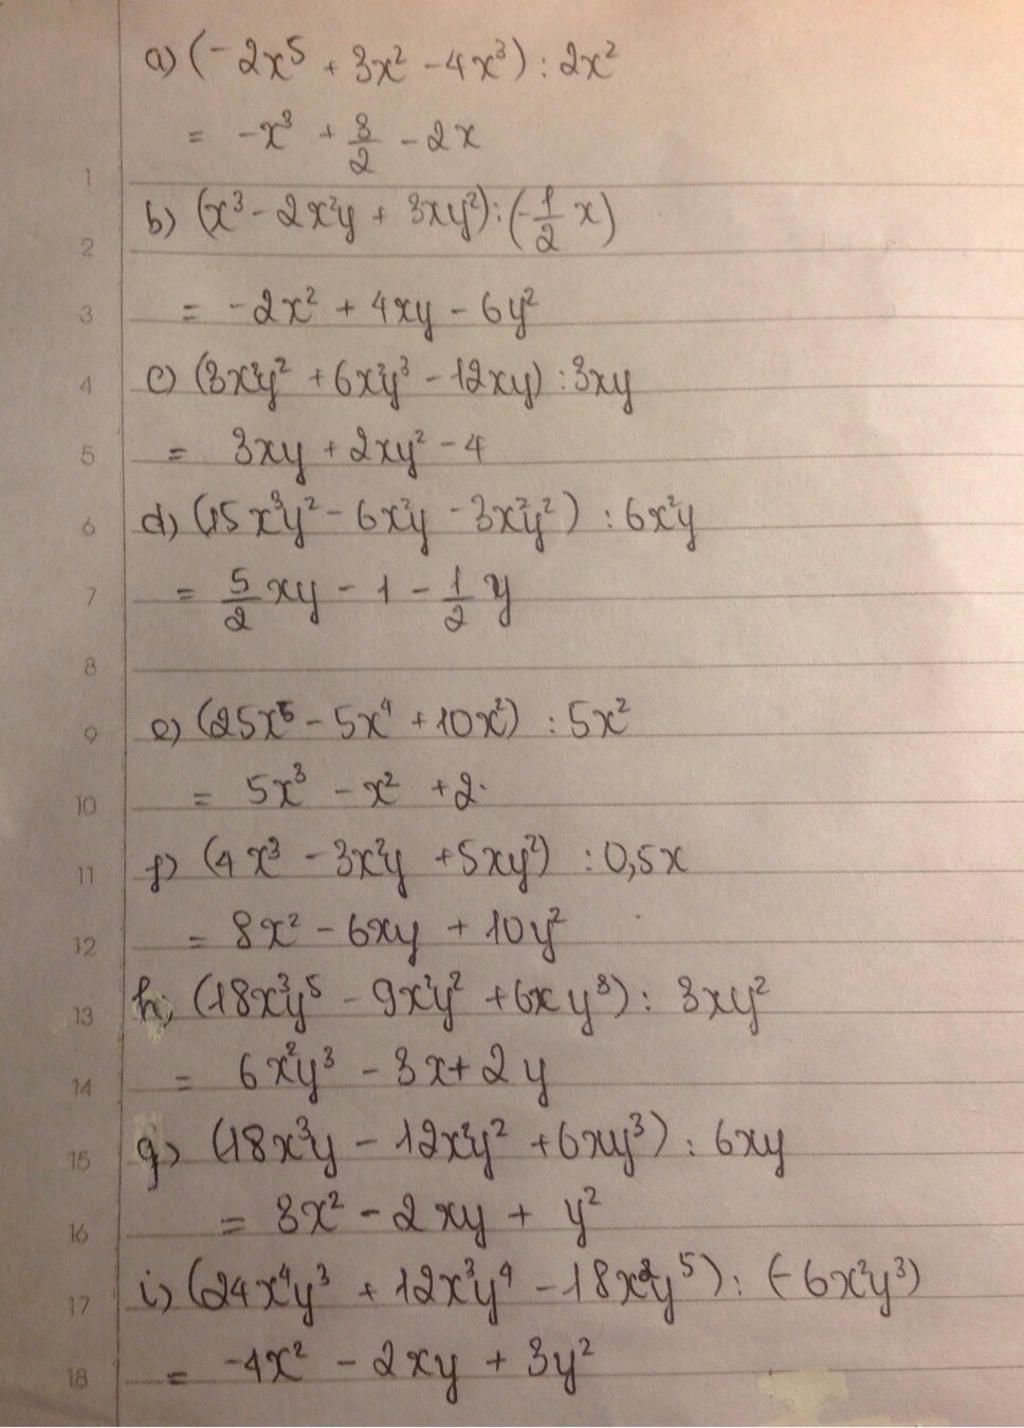 a) (-2x⁵ + 3x² - 4x³) : 2x²
= -x³ + 3/2 - 2x
1
b) (x³ - 2x²y + 3xy²) : (-1/2 x)
2
3 = -2x² + 4xy - 6y²
4 c) (3x²y² + 6x²y³ - 12xy) : 3xy
5 = 3xy + 2xy² - 4
6 d) (15x³y² - 6x²y - 3x²y²) : 6x²y
7 = 5/2 xy - 1 - 1/2 y
8
9 e) (25x⁵ - 5x⁴ + 10x²) : 5x²
10 = 5x³ - x² + 2.
11 f) (4x³ - 3x²y + 5xy²) : 0,5x
12 = 8x² - 6xy + 10y²
13 h) (18x³y⁵ - 9x²y² + 6xy³) : 3xy²
14 = 6x²y³ - 3x + 2y
15 g) (18x³y - 12x²y² + 6xy³) : 6xy
16 = 3x² - 2xy + y²
17 i) (24x⁴y³ + 12x³y⁴ - 18x²y⁵) : (-6x²y³)
18 = -4x² - 2xy + 3y²